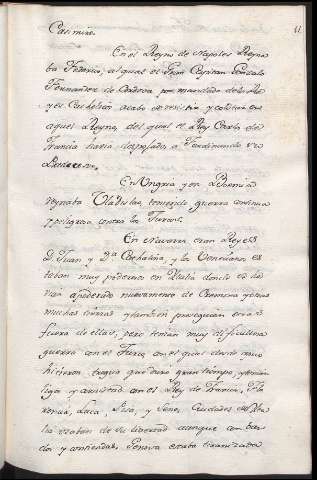 11
Casimiro.
En el Reyno de Napoles Reyna
ba Federico, al qual el Gran Capitan Gonzalo
Fernandez de Cordova por mandado de los Re
yes Catholicos acabo de
aquel Reyno, del qual el Rey Carlo de
Francia havia despojado a Ferdinando
En Ungria y en Bohemia
reynaba Vladislao, teniendo guerra continua
y peligrosa contra los Turcos.
En Navarra eran Reyes
D. Juan y Dª Cathalina, y los Venecianos es
taban muy poderosos en Italia donde se ha
vian apoderado nuevamente de Cremona y otras
muchas tierras y tambien poseyan otras
fuera de ellas, pero tenian muy dificultosa
guerra con el Turco, con el qual desde poco
hicieron tregua que duro gran tiempo, y tenian
liga y amistad con el Rey de Francia, Flo
rencia, Luca, Pisa, y Sena, Ciudades de Ita
lia usaban de su libertad aunque con ban
dos y contiendas, Genova estaba tiranizada